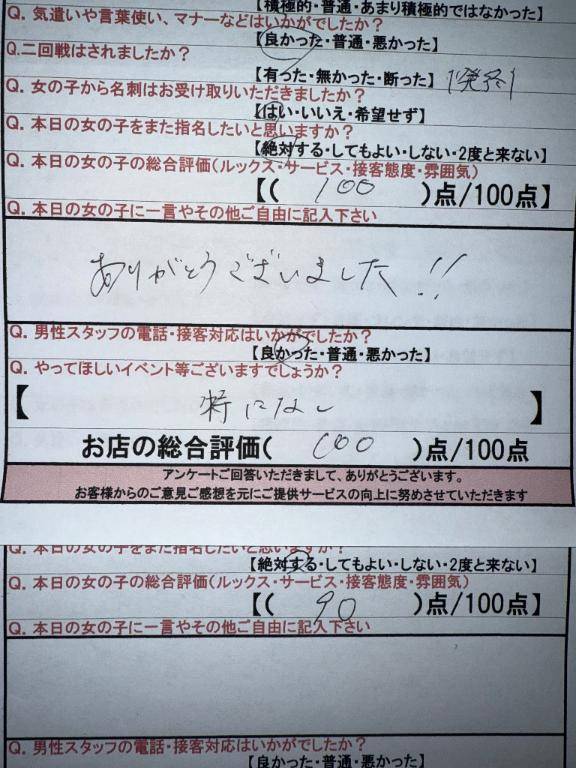 【積極的・普通・あまり積極的ではなかった】
Q. 気遣いや言葉使い、マナーなどはいかがでしたか？
【良かった・普通・悪かった】
Q. 二回戦はされましたか？
【有った・無かった・断った】
Q. 女の子から名刺はお受け取りいただきましたか？
【はい・いいえ・希望せず】
Q. 本日の女の子をまた指名したいと思いますか？
【絶対する・してもよい・しない・2度と来ない】
Q. 本日の女の子の総合評価(ルックス・サービス・接客態度・雰囲気)
【( 100 )点/100点】
Q. 本日の女の子に一言やその他ご自由に記入下さい
ありがとうございました!!
Q. 男性スタッフの電話・接客対応はいかがでしたか？
【良かった・普通・悪かった】
Q. やってほしいイベント等ございますでしょうか？
【 特になし 】
お店の総合評価( 100 )点/100点
アンケートご回答いただきまして、ありがとうございます。
お客様からのご意見ご感想を元にご提供サービスの向上に努めさせていただきます
Q. 本日の女の子をまた指名したいと思いますか？
【絶対する・してもよい・しない・2度と来ない】
Q. 本日の女の子の総合評価(ルックス・サービス・接客態度・雰囲気)
【( 90 )点/100点】
Q. 本日の女の子に一言やその他ご自由に記入下さい
Q. 男性スタッフの電話・接客対応はいかがでしたか？
【良かった・普通・悪かった】